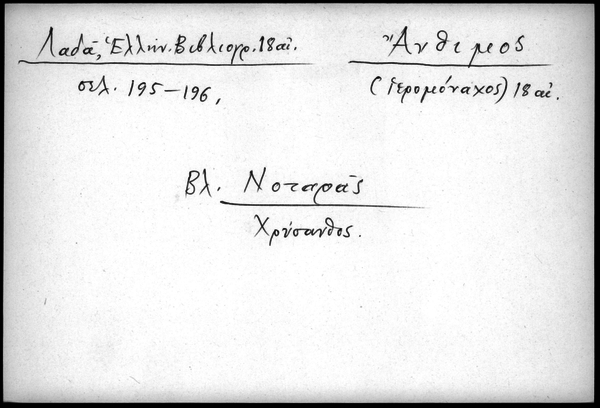 Λαδᾶ, Ἑλλην. Βιβλιογρ. 18 αἰ.
σελ. 195-196,
Ἄνθιμος
(ἱερομόναχος) 18 αἰ.
Βλ. Νοταρᾶς
Χρύσανθος.